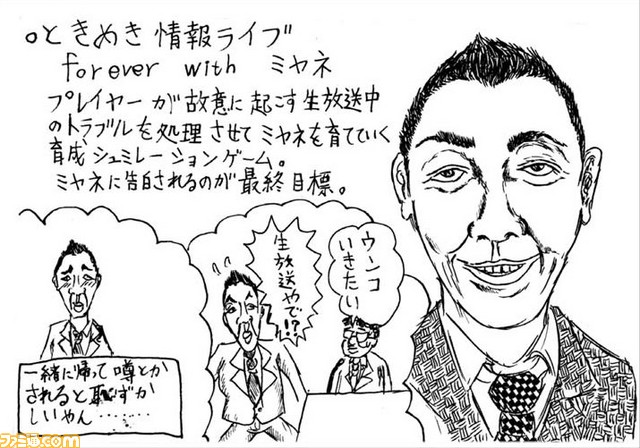 ○ときめき情報ライブ
forever with ミヤネ
プレイヤーが故意に起こす生放送中
のトラブルを処理させてミヤネを育てていく
育成シュミレーションゲーム。
ミヤネに告白されるのが最終目標。
ウンコ
いきたい
生放送やで!?
一緒に帰って噂とか
されると恥ずか
しいやん………
ファミ通.com